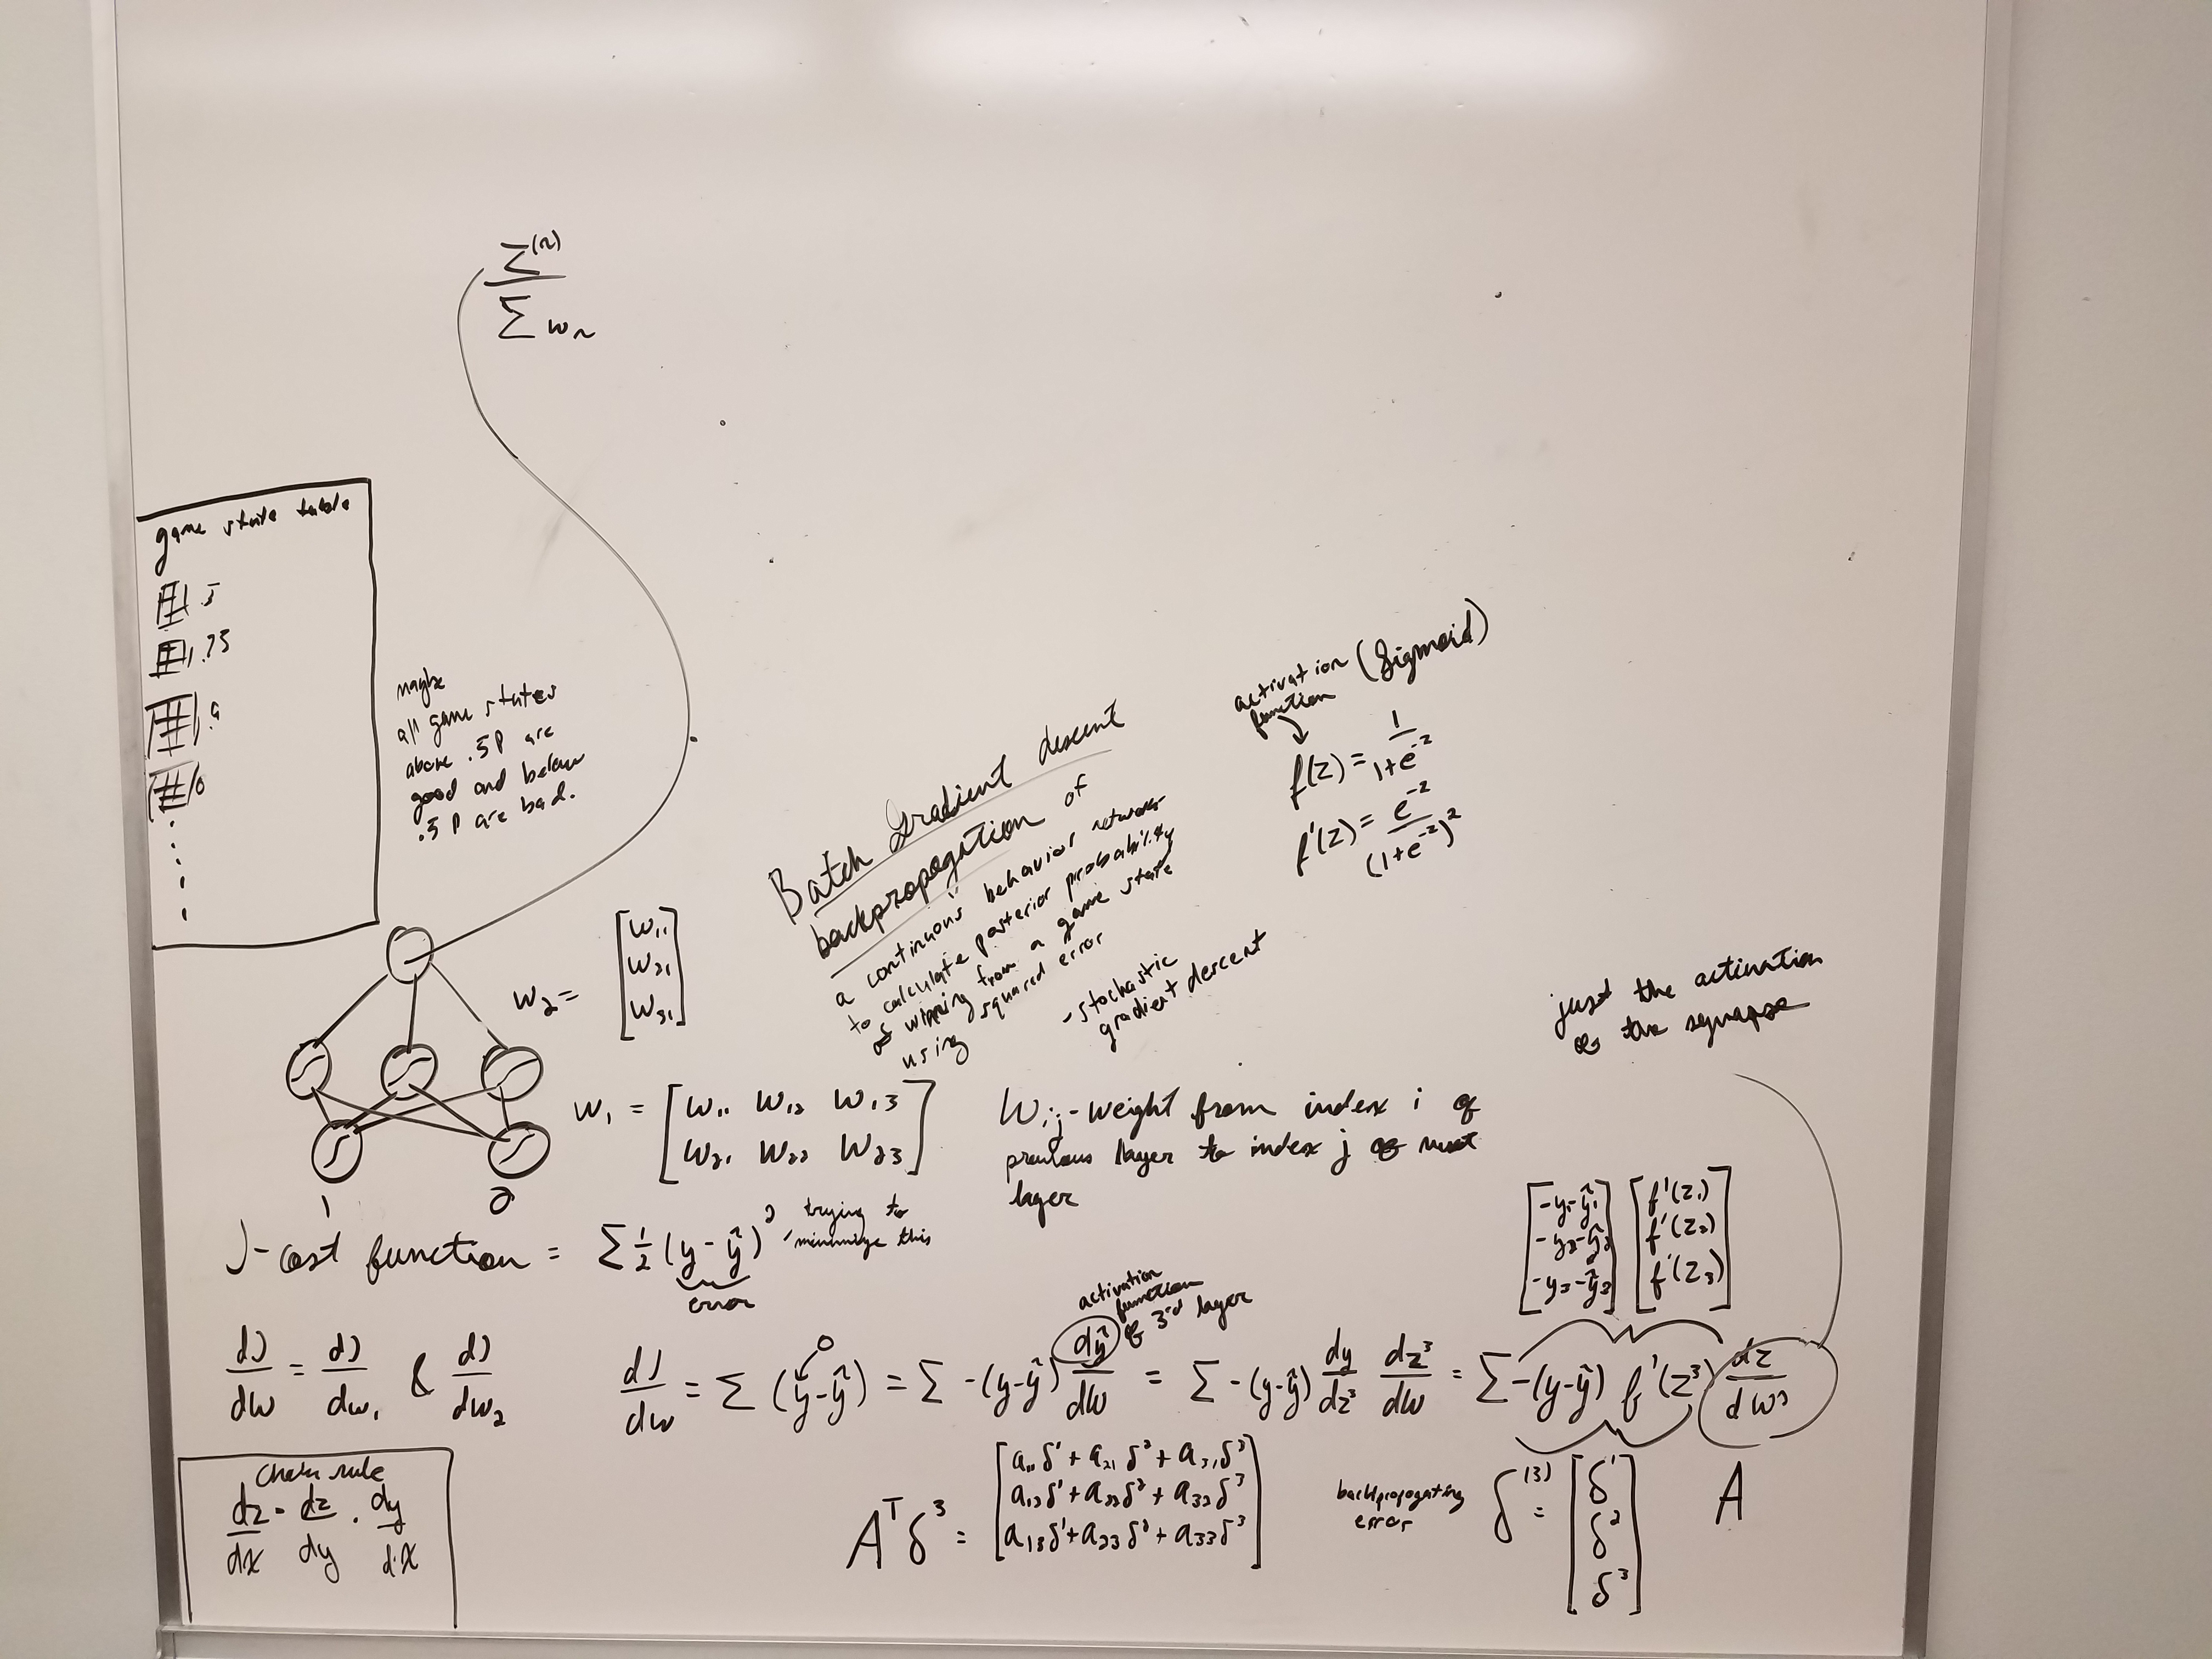 Σ⁽ⁿ⁾
Σ wₙ
game state table
.5
.75
.9
0
maybe
all game states
above .5P are
good and below
.5P are bad.
Batch Gradient descent
backpropogation of
a continuous behavior network
to calculate posterior probability
of winning from a game state
using squared error
-stochastic
gradient descent
activation (Sigmoid)
function
f(z) = 1/(1+e^-z)
f'(z) = e^-z/(1+e^-z)²
w₂ = [w₁₁
w₂₁
w₃₁]
w₁ = [w₁₁ w₁₂ w₁₃
w₂₁ w₂₂ w₂₃]
1 2
Wij - weight from index i of
previous layer to index j of next
layer
just the activation
of the synapse
J - cost function = Σ ½ (y - ŷ)²
error
trying to
minimize this
[-y₁-ŷ₁
-y₂-ŷ₂
-y₃-ŷ₃]
[f'(z₁)
f'(z₂)
f'(z₃)]
activation
function
of 3rd layer
dJ/dw = dJ/dw₁ & dJ/dw₂
0
dJ/dw = Σ (y-ŷ) = Σ -(y-ŷ) dŷ/dw = Σ -(y-ŷ) dy/dz³ dz³/dw = Σ -(y-ŷ) f'(z³) dz/dw₂
Chain rule
dz/dx = dz/dy · dy/dx
Aᵀδ³ = [a₁₁δ¹ + a₂₁δ² + a₃₁δ³
a₁₂δ¹ + a₂₂δ² + a₃₂δ³
a₁₃δ¹ + a₂₃δ² + a₃₃δ³]
backpropogating
error
δ⁽³⁾ = [δ¹
δ²
δ³]
A